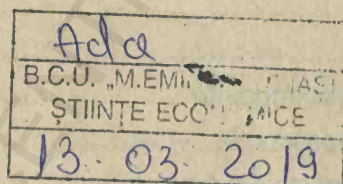 Ada
B.C.U. „M.EMI IAȘI
ȘTIINȚE ECO MICE
13. 03. 2019